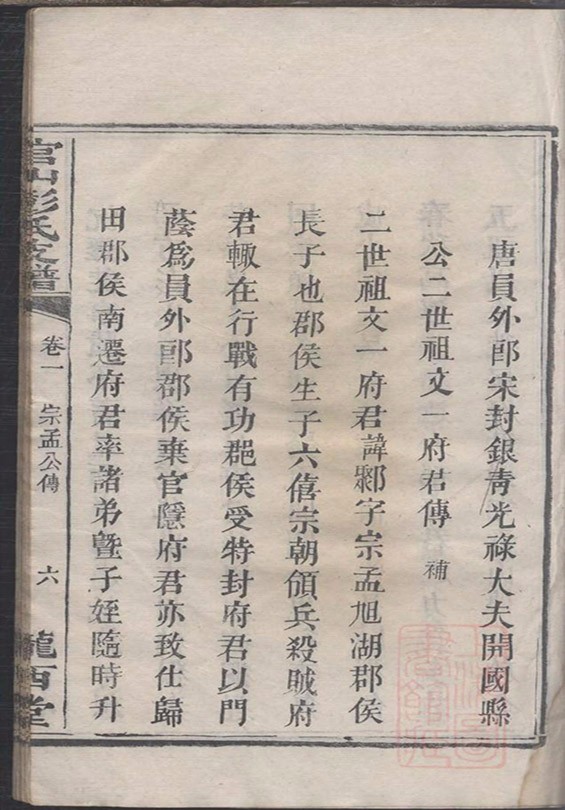 唐員外郎宋封銀青光祿大夫開國縣
公二世祖文一府君傳 補
二世祖文一府君諱鄴字宗孟旭湖郡侯
長子也郡侯生子六僖宗朝領兵殺賊府
君輙在行戰有功郡侯受特封府君以門
蔭爲員外郎郡侯棄官隱府君亦致仕歸
田郡侯南遷府君率諸弟曁子姪隨時升
官山彭氏支譜
卷一
宗孟公傳
六
隴西堂